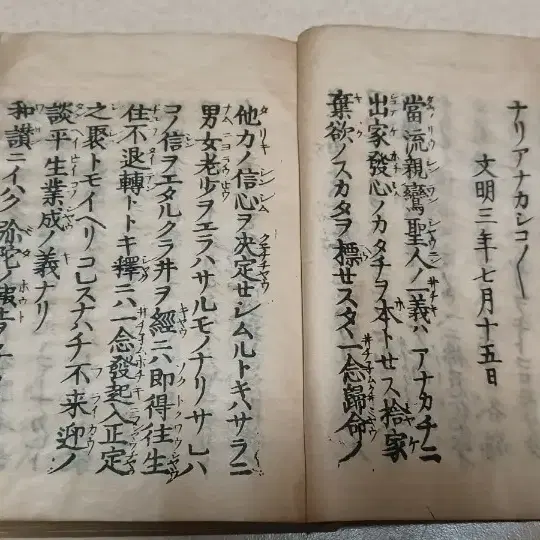 ナリアナカシコ〱
文明三年七月十五日
當流親鸞聖人ノ一義ハアナカチニ
出家發心ノカタチヲ本トセス捨家
棄欲ノスカタヲ標セスタヽ一念歸命ノ
他力ノ信心ヲ決定セシムルトキハサラニ
男女老少ヲエラハサルモノナリサレハ
コノ信ヲエタルクラ井ヲ經ニハ即得往生
住不退轉トトキ釋ニハ一念發起入正定
之聚トモイヘリコレスナハチ不来迎ノ
談平生業成ノ義ナリ
和讃ニイハク弥陀ノ報土ヲ